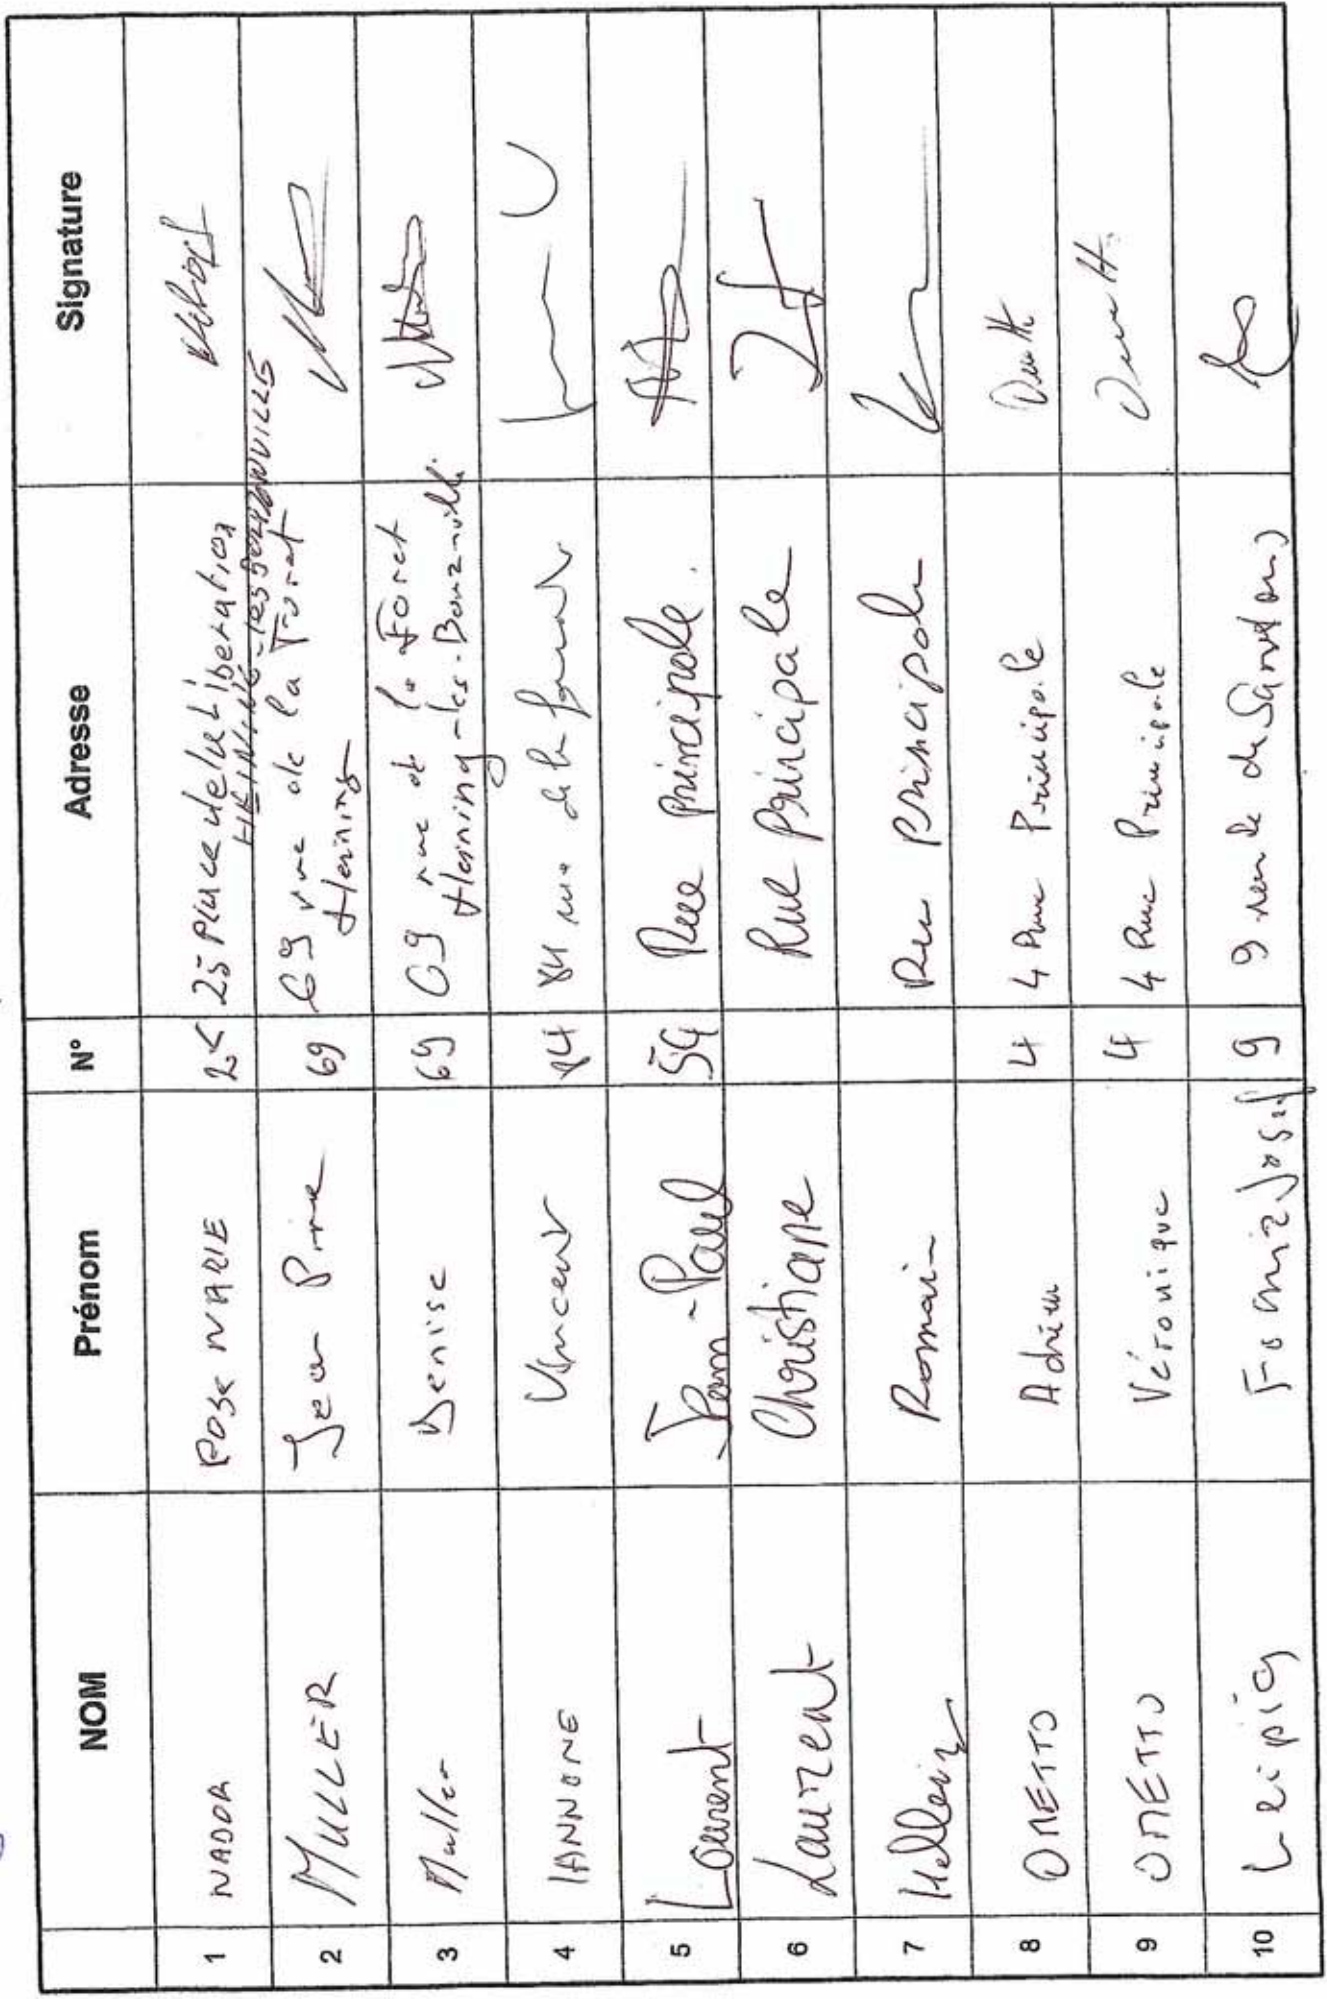 NOM Prénom N° Adresse Signature
1 NADDR ROSE MARIE 25 25 Place de la Libération
HEINING-LES-BOUZONVILLE
2 MULLER Jean Pierre 69 69 rue de la Foret
Heining
3 Muller Denise 69 69 rue de la Foret
Heining-les-Bouzonville
4 IANNONE Vincent 84 84 rue de la
5 Laurent Jean-Paul 54 Rue principale.
6 Laurent Christiane Rue principale
7 Romain Rue principale
8 OMETTO Adrien 4 4 Rue Principale
9 OMETTO Véronique 4 4 Rue Principale
10 Leipzig 9 9 rue de